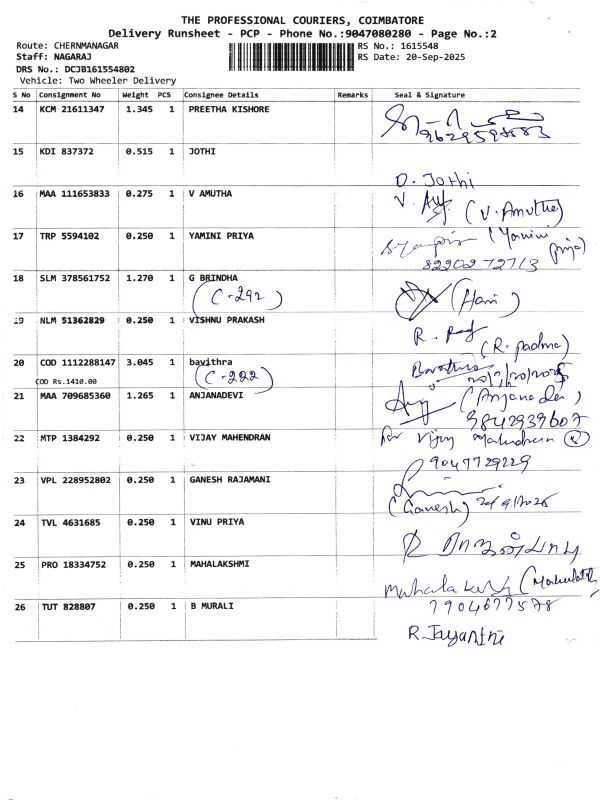 THE PROFESSIONAL COURIERS, COIMBATORE
Delivery Runsheet - PCP - Phone No.:9047080280 - Page No.:2
Route: CHERNMANAGAR
RS No.: 1615548
Staff: NAGARAJ
RS Date: 20-Sep-2025
DRS No.: DCJB161554802
Vehicle: Two Wheeler Delivery
S No Consignment No Weight PCS Consignee Details Remarks Seal & Signature
14 KCM 21611347 1.345 1 PREETHA KISHORE
15 KDI 837372 0.515 1 JOTHI
D. Jothi
16 MAA 111653833 0.275 1 V AMUTHA
V. (V. Amutha)
17 TRP 5594102 0.250 1 YAMINI PRIYA
(Yamini priya)
8220272713
18 SLM 378561752 1.270 1 G BRINDHA
(C-292) (Hari)
19 NLM 51362829 0.250 1 VISHNU PRAKASH
R. (R. padma)
20 COD 1112288147 3.045 1 bavithra
COD Rs.1410.00 (C-222)
21 MAA 709685360 1.265 1 ANJANADEVI
(Anjanadevi)
9842939607
22 MTP 1384292 0.250 1 VIJAY MAHENDRAN
for Vijay Mahendran
9047729229
23 VPL 228952802 0.250 1 GANESH RAJAMANI
(Ganesh)
24 TVL 4631685 0.250 1 VINU PRIYA
25 PRO 18334752 0.250 1 MAHALAKSHMI
7904677578
26 TUT 828807 0.250 1 B MURALI
R. Jayanthi